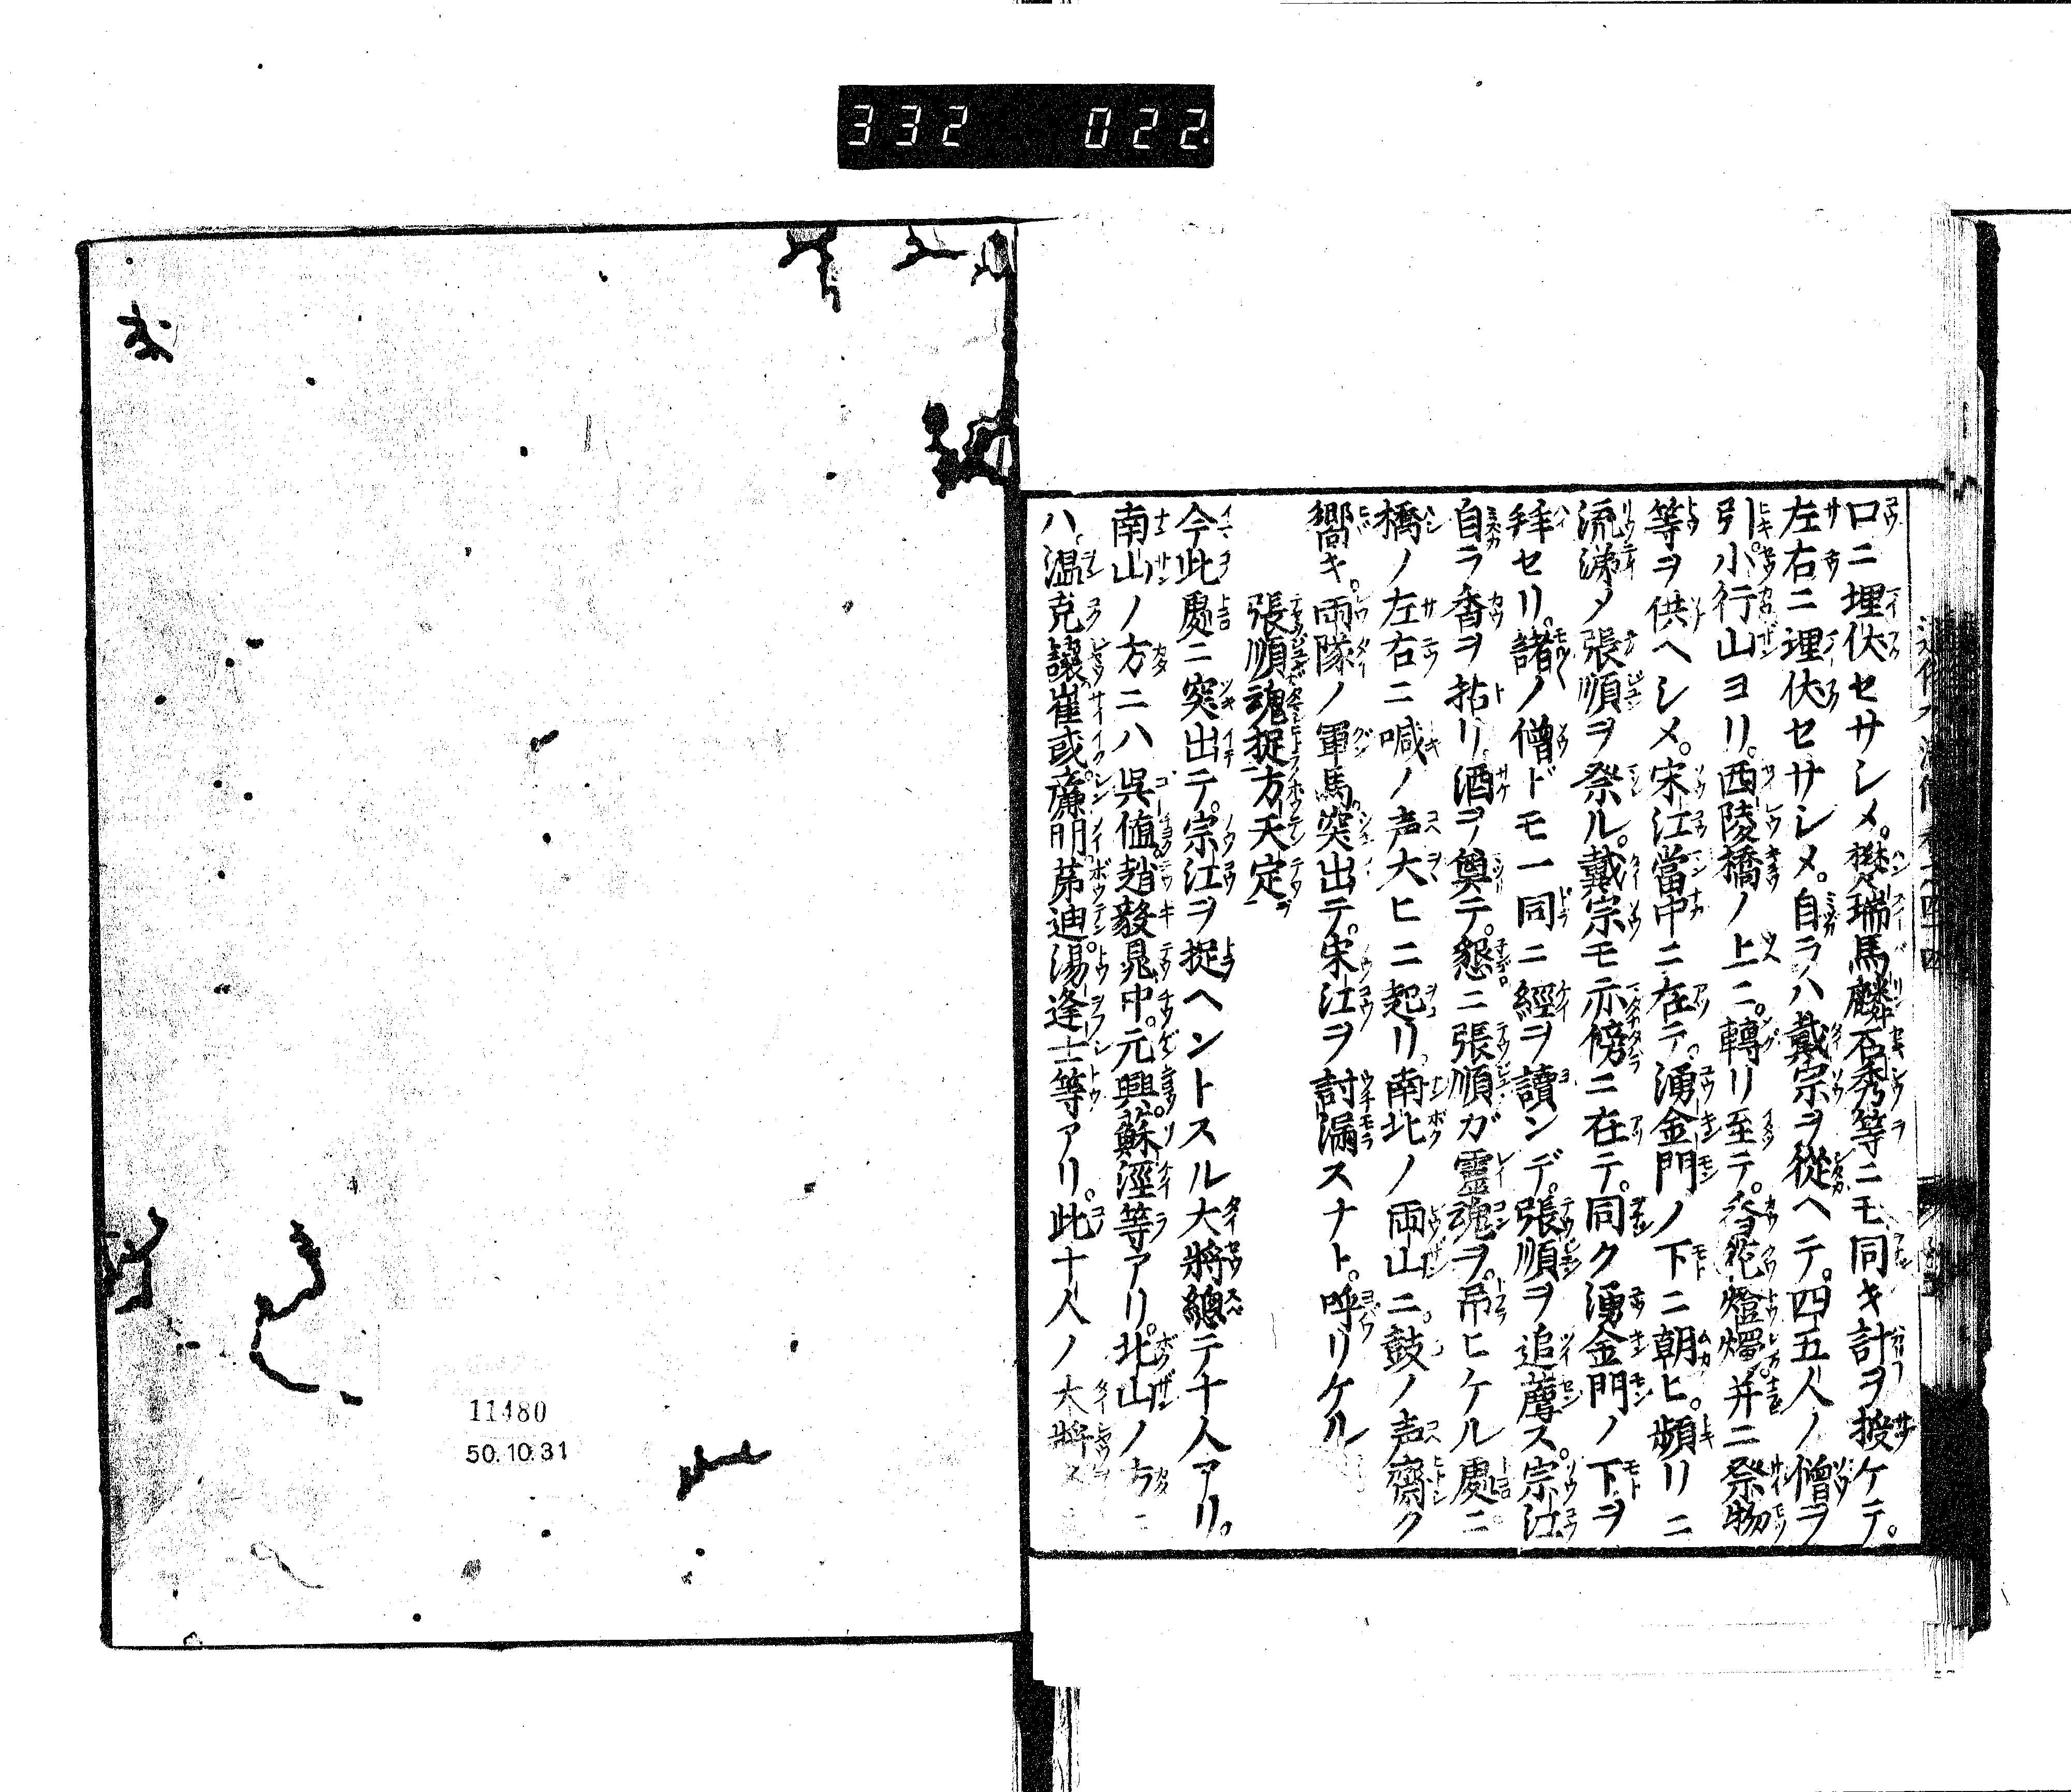 332 022
口ニ埋伏セサシメ。樊瑞馬麟石秀等ニモ同キ計ヲ授ケテ。
左右ニ埋伏セサシメ。自ラハ戴宗ヲ從ヘテ。四五人ノ僧ヲ
引。小行山ヨリ。西陵橋ノ上ニ。轉リ至テ。香花燈燭。并ニ祭物
等ヲ供ヘシメ。宋江當中ニ在テ。湧金門ノ下ニ朝ヒ。頻リニ
流涕メ張順ヲ祭ル。戴宗モ亦傍ニ在テ。同ク湧金門ノ下ヲ
拜セリ。諸ノ僧ドモ一同ニ經ヲ讀ンデ。張順ヲ追薦ス。宗江
自ラ香ヲ拈リ。酒ヲ奠テ。懇ニ張順ガ霊魂ヲ。吊ヒケル處ニ。
橋ノ左右ニ喊ノ声大ヒニ起リ。南北ノ両山ニ。鼓ノ声齋ク
響キ。両隊ノ軍馬。突出テ。宋江ヲ討漏スナト。呼リケル
張順魂捉方天定
今此處ニ突出テ。宗江ヲ捉ヘントスル大將。總テ十人アリ。
南山ノ方ニハ呉値。趙毅。晁中。元興。蘇涇等アリ。北山ノ方ニ
ハ。温克讓。崔彧。廉明。茅迪。湯逢士等アリ。此十人ノ大將
11480
50.10.31